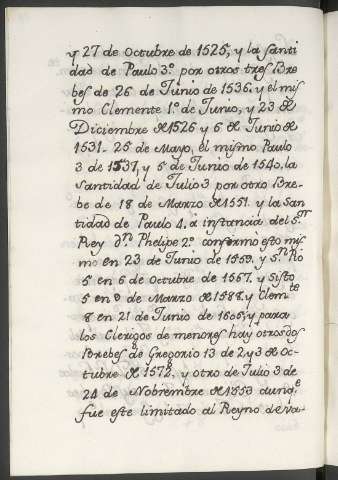 y 27 de Octubre de 1525, y la santi
dad de Paulo 3.º por otros tres Bre
bes de 26 de Junio de 1536. y el mis
mo Clemente 1.º de Junio, y 23 de
Diciembre de 1526 y 6 de Junio de
1531. 25 de Mayo, el mismo Paulo
3 de 1537, y 5 de Junio de 1540, la
Santidad de Julio 3 por otro Bre-
be de 18 de Marzo de 1551. y la san
tidad de Paulo 4. a instancia del s.or
Rey D.n Phelipe 2.º confirmo esto mis
mo en 23 de Junio de 1559. y S.n Pio
5 en 6 de Octubre de 1567. y Sisto
5 en 8 de Marzo de 1588. y Clem.te
8 en 21 de Junio de 1605; y para
los Clerigos de menores hay otros dos
Brebes de Gregorio 13 de 2 y 3 de oc-
tubre de 1572, y otro de Julio 3 de
24 de Nobiembre de 1553 aunq.e
fue este limitado al Reyno de Va-